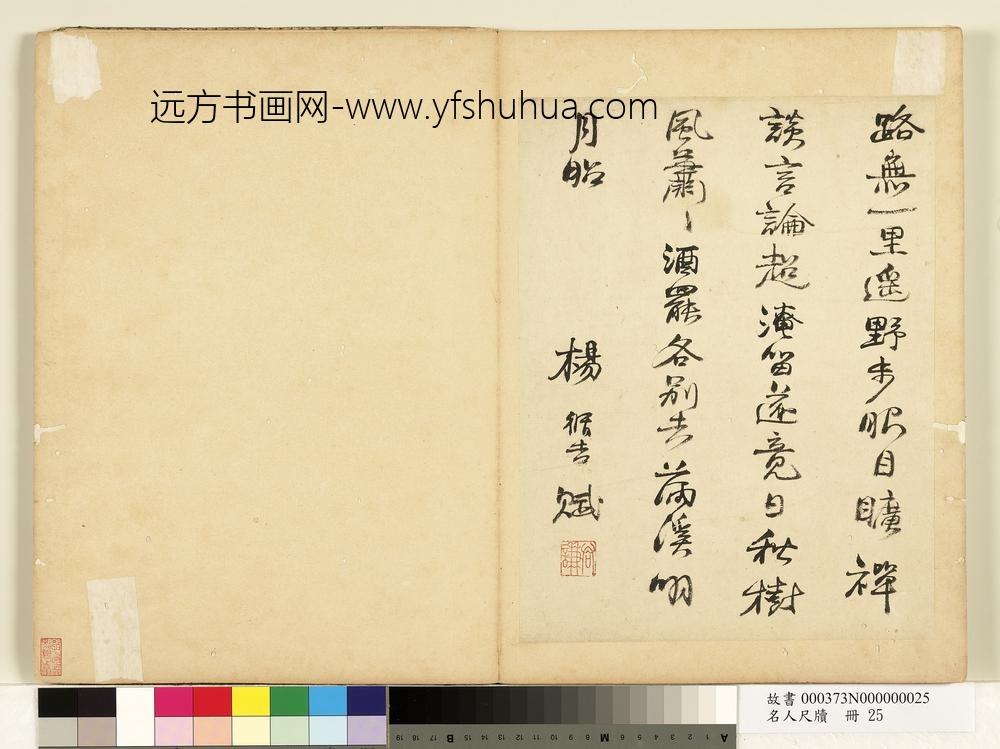 远方书画网-www.yfshuhua.com
路無一里遥野步眼目曠禪
談言論超淹留遂竟日秋樹
風蕭〻酒罷各别去滿溪明
月昭
楊循吉賦
故書 000373N000000025
名人尺牘 冊 25